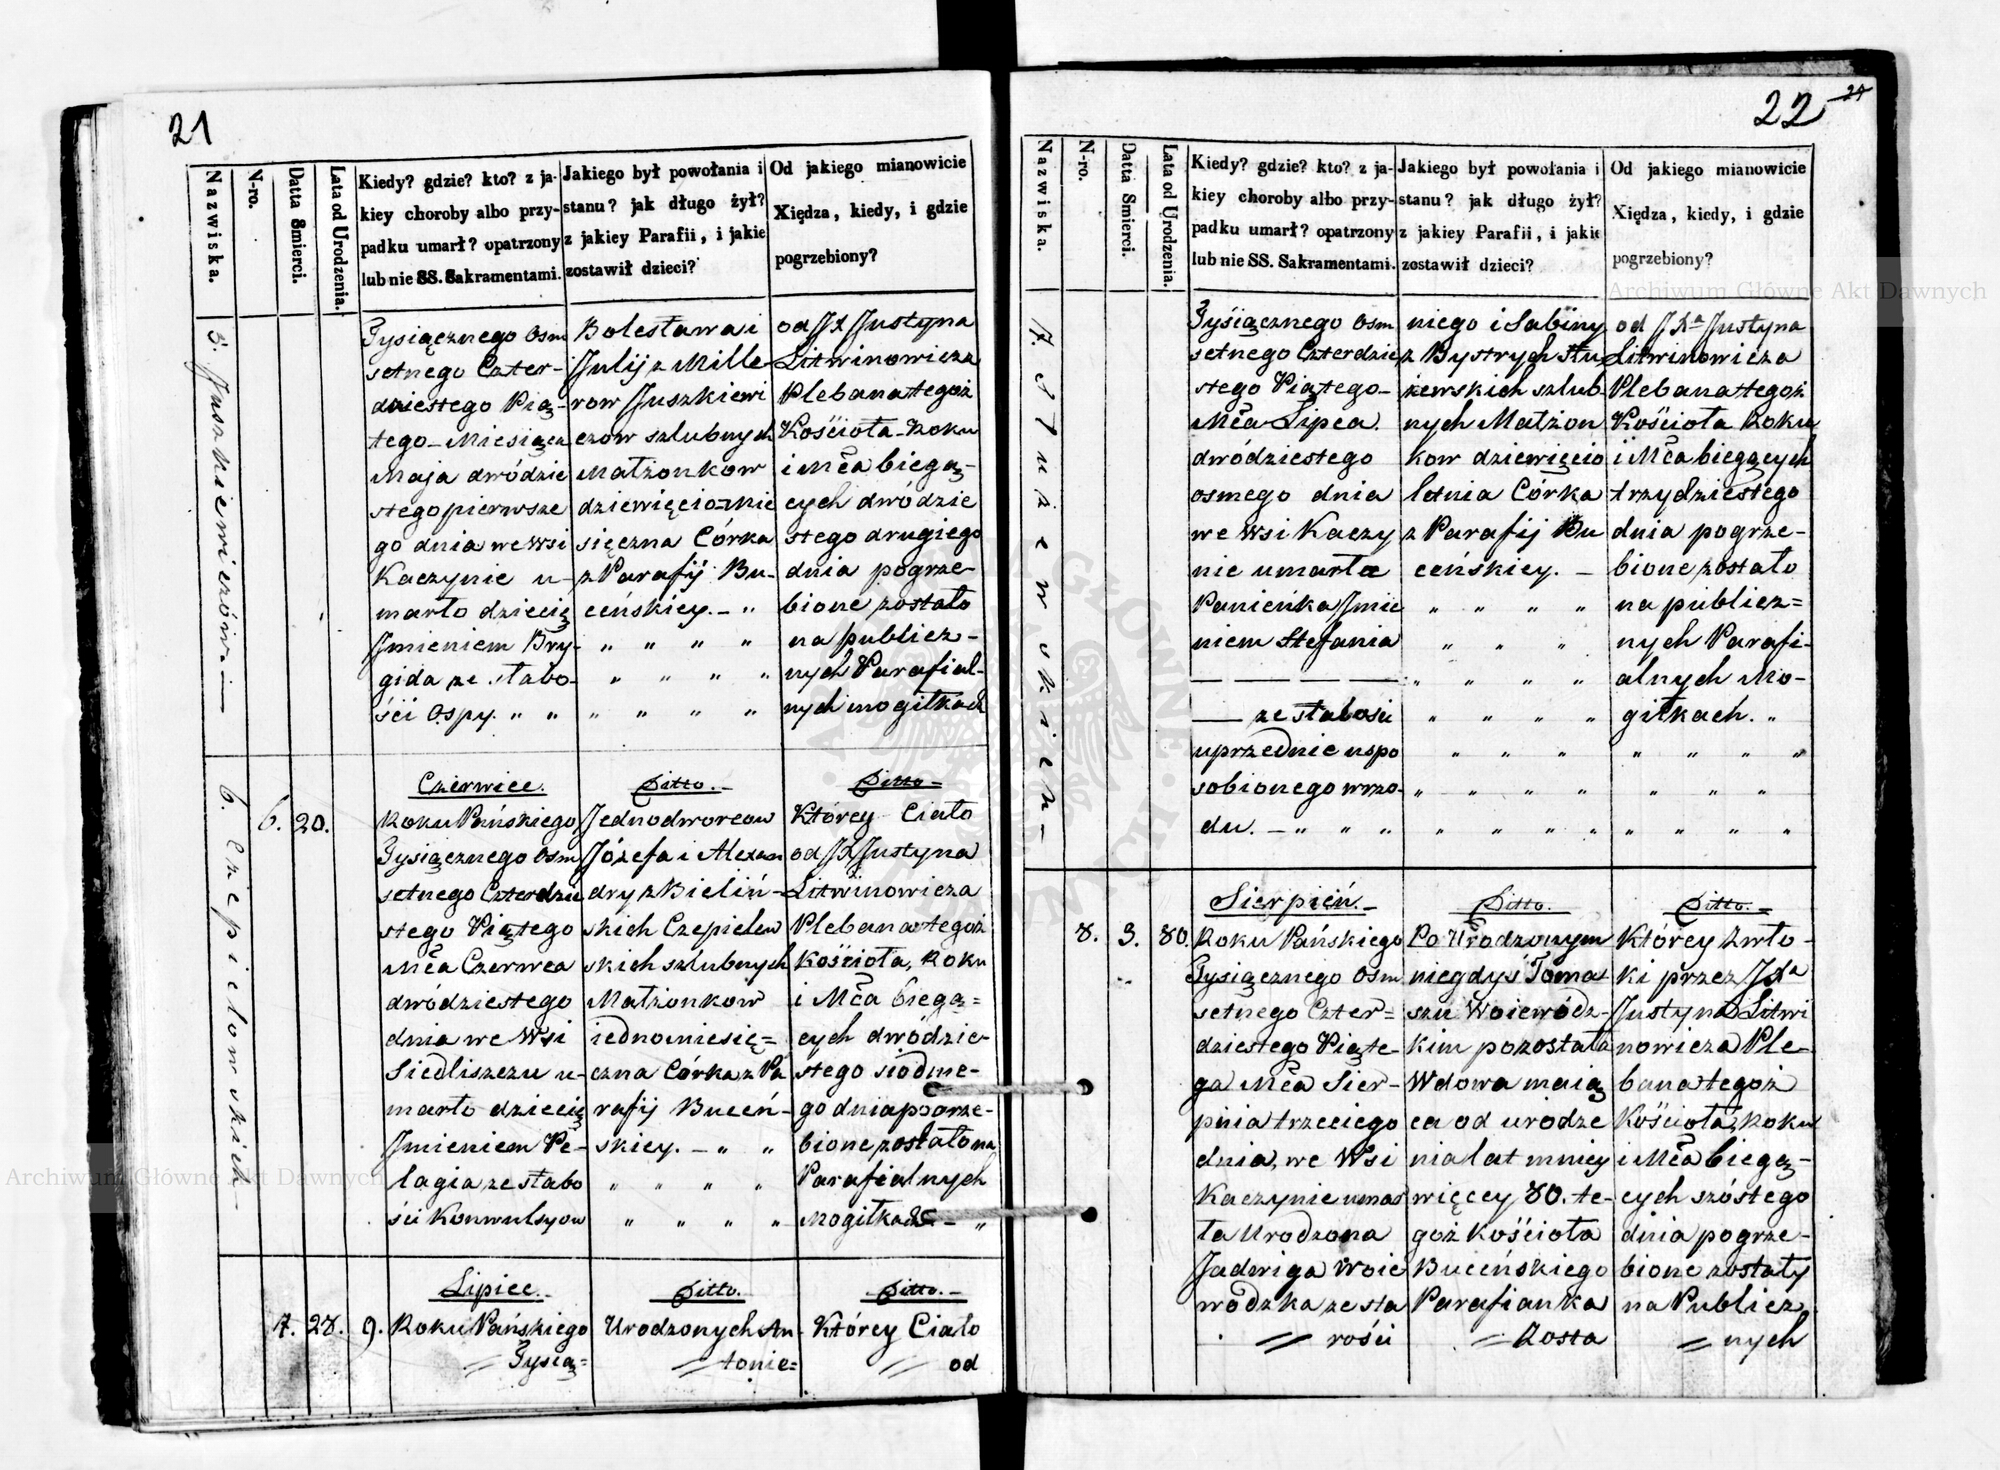 21
Nazwiska.
N-ro.
Data Smierci.
Lata od Urodzenia.
Kiedy? gdzie? kto? z ja-
kiey choroby albo przy-
padku umarł? opatrzony
lub nie SS. Sakramentami.
Jakiego był powołania i
stanu? jak długo żył?
z jakiey Parafii, i jakie
zostawił dzieci?
Od jakiego mianowicie
Xiędza, kiedy, i gdzie
pogrzebiony?
5. Juszkiewiczów. —
Tysiącznego Osm
setnego Czter-
dziestego Pią-
tego — Miesiąca
Maja dwódzie
stego pierwsze
go dnia we Wsi
Kaczynie u-
marło dziecię
Jmieniem Bry-
gida ze słabo-
ści Ospy. „ „
Bolesława i
Julij z Mille-
row Juszkiewi
czow szlubnych
Małżonkow
dziewięciomie
sięczna Córka
z Parafij Bu-
ceńskiey. — „
„ „ „ „
„ „ „ „
„ „ „ „
od JX Justyna
Litwinowicza
Plebana tegoż
Kościoła — Roku
i Mca biegą-
cych dwódzie
stego drugiego
dnia pogrze-
bione zostało
na publicz-
nych Parafial-
nych mogiłkach
6. Czepielowskich —
6. 20.
Czerwiec.
Roku Pańskiego
Tysiącznego Osm
setnego Czterdzie
stego Piątego
Mca Czerwca
dwódziestego
dnia we Wsi
Siedliszczu u-
marło dziecię
Jmieniem Pe-
lagia ze słabo
ści Konwulsyow
Ditto. —
Jednodworcow
Józefa i Alexan
dry z Bieliń-
skich Czepielow
skich szlubnych
Małżonkow
iednomiesię=
czna Córka z Pa
rafij Buceń-
skiey. — „ „
„ „ „ „
„ „ „ „
Ditto —
Którey Ciało
od JX Justyna
Litwinowicza
Plebana tegoż
Kościoła, Roku
i Mca biegą=
cych dwódzie-
stego siódme-
go dnia pogrze-
bione zostało na
Parafialnych
Mogiłkach — „
7. 28. 9.
Lipiec. —
Roku Pańskiego
Tysią=
Ditto.
Urodzonych An-
tonie=
Ditto. —
Którey Ciało
od
22
24
Nazwiska.
N-ro.
Data Smierci.
Lata od Urodzenia.
Kiedy? gdzie? kto? z ja-
kiey choroby albo przy-
padku umarł? opatrzony
lub nie SS. Sakramentami.
Jakiego był powołania i
stanu? jak długo żył?
z jakiey Parafii, i jakie
zostawił dzieci?
Od jakiego mianowicie
Xiędza, kiedy, i gdzie
pogrzebiony?
7. Stużewskich —
Tysiącznego Osm
setnego Czterdzie
stego Piątego —
Mca Lipca.
dwódziestego
osmego dnia
we Wsi Kaczy
nie umarła
Panieńka Jmie
niem Stefania
— — — — —
— ze słabości
uprzednie uspo
sobionego wrzo-
du. — „ „ „
niego i Sabiny
z Bystrych Stu
żewskich szlub-
nych Małżon
kow dziewięcio
letnia Córka
z Parafij Bu
ceńskiey. —
„ „ „ „
„ „ „
„ „ „ „
„ „ „ „
„ „ „
„ „ „ „
„ „ „ „
od JXa Justyna
Litwinowicza
Plebana tegoż
Kościoła Roku
i Mca biegących
trzydziestego
dnia pogrze-
bione zostało
na publicz=
nych Parafi-
alnych Mo-
giłkach. „
„ „ „ „
„ „ „
„ „ „ „
8. 3. 80.
Sierpień. —
Roku Pańskiego
Tysiącznego Osm
setnego Czter=
dziestego Piąte-
go Mca Sier-
pnia trzeciego
dnia, we Wsi
Kaczynie umar
ła Urodzona
Jadwiga Woie
wódzka ze sta
rości
Ditto.
Po Urodzonym
niegdyś Toma
szu Woiewódz-
kim pozostała
Wdowa maią
ca od urodze
nia lat mniey
więcey 80. te-
goż Kościoła
Buceńskiego
Parafianka
Zosta
Ditto. —
Którey Zwło-
ki przez JXa
Justyna Litwi
nowicza Ple-
bana tegoż
Kościoła, Roku
i Mca biegą-
cych szóstego
dnia pogrze-
bione zostały
na Publicz,
nych
Archiwum Główne Akt Dawnych
Archiwum Główne Akt Dawnych